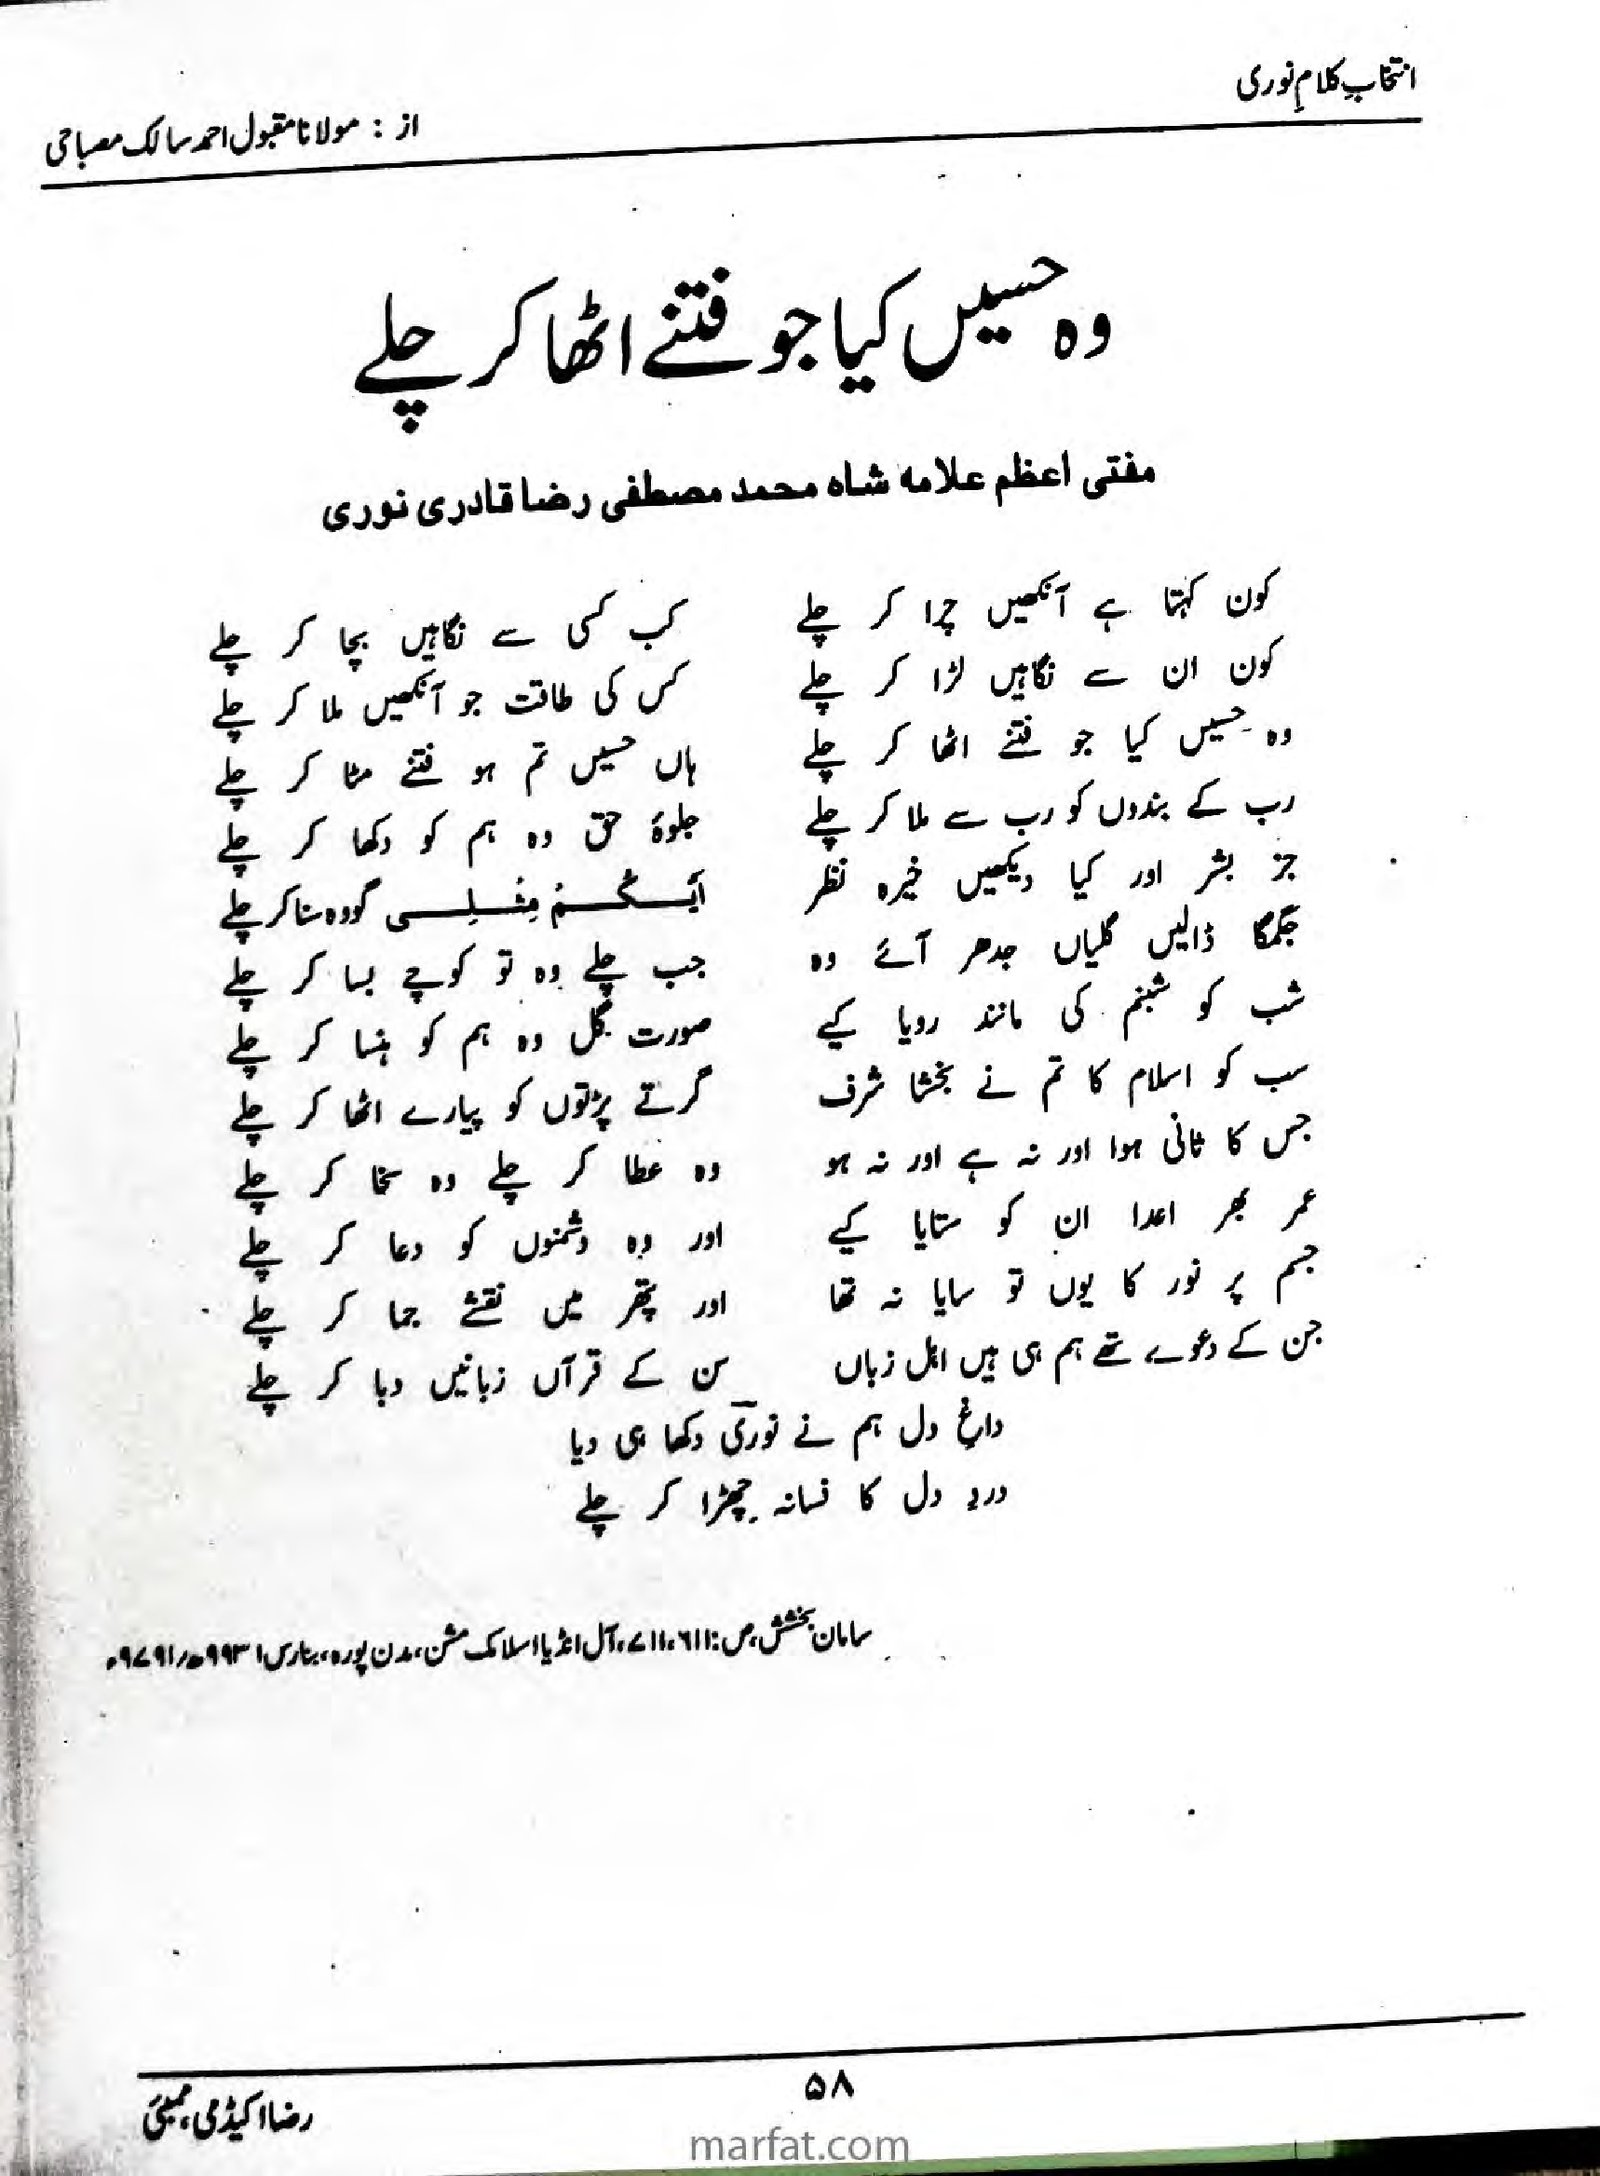 انتخابِ کلامِ نوری
از : مولانا مقبول احمد سالک مصباحی
وہ حسیں کیا جو فتنے اٹھا کر چلے
مفتی اعظم علامہ شاہ محمد مصطفی رضا قادری نوری
کون کہتا ہے آنکھیں چرا کر چلے کب کسی سے نگاہیں بچا کر چلے
کون ان سے نگاہیں لڑا کر چلے کس کی طاقت جو آنکھیں ملا کر چلے
وہ حسیں کیا جو فتنے اٹھا کر چلے ہاں حسیں تم ہو فتنے مٹا کر چلے
رب کے بندوں کو رب سے ملا کر چلے جلوۂ حق وہ ہم کو دکھا کر چلے
جز بشر اور کیا دیکھیں خیرہ نظر اَیُّکُمْ مِثْلِی گو وہ سنا کر چلے
جگمگا ڈالیں گلیاں جدھر آئے وہ جب چلے وہ تو کوچے بسا کر چلے
شب کو شبنم کی مانند رویا کیے صورت گل وہ ہم کو ہنسا کر چلے
سب کو اسلام کا تم نے بخشا شرف گرتے پڑتوں کو پیارے اٹھا کر چلے
جس کا ثانی ہوا اور نہ ہے اور نہ ہو وہ عطا کر چلے وہ سخا کر چلے
عمر بھر اعدا ان کو ستایا کیے اور وہ دشمنوں کو دعا کر چلے
جسم پر نور کا یوں تو سایا نہ تھا اور پتھر میں نقشے جما کر چلے
جن کے دعوے تھے ہم ہی ہیں اہل زباں سن کے قرآں زبانیں دبا کر چلے
داغِ دل ہم نے نوریؔ دکھا ہی دیا
دردِ دل کا فسانہ چھڑا کر چلے
سامان بخشش، ص: ۱۱۶، ۱۱۷، آل انڈیا اسلامک مشن، مدن پورہ، بنارس ۱۳۹۹ھ/۱۹۷۹ء
۵۸
رضا اکیڈمی، ممبئی
marfat.com